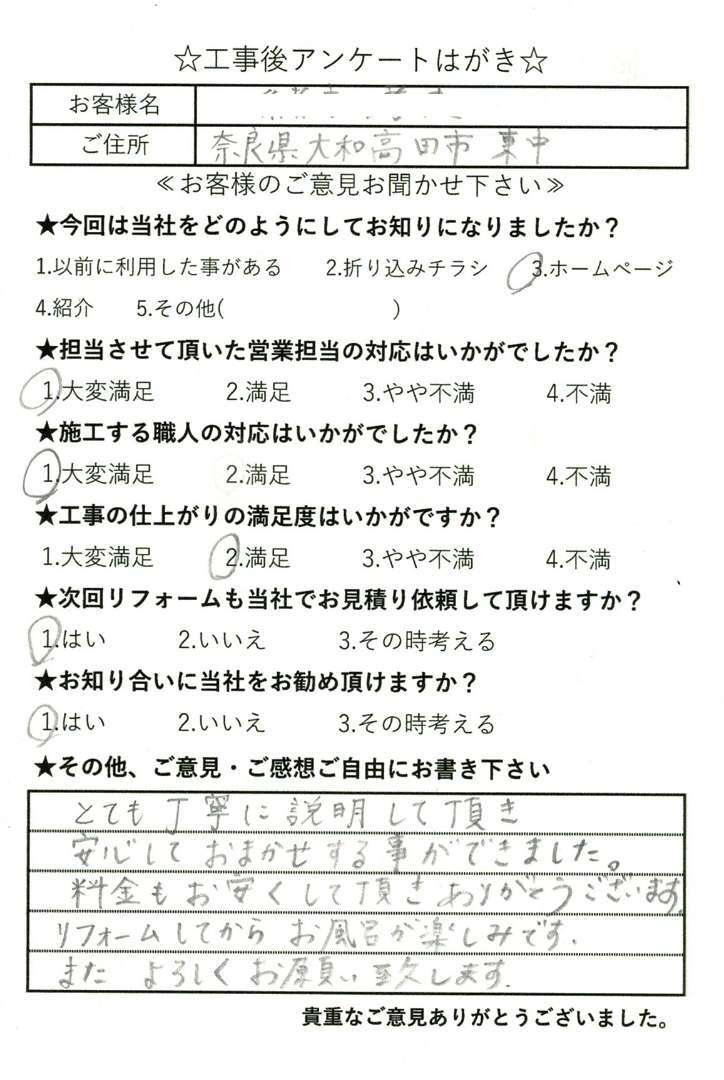 ☆工事後アンケートはがき☆
お客様名
ご住所 奈良県大和高田市東中
≪お客様のご意見お聞かせ下さい≫
★今回は当社をどのようにしてお知りになりましたか？
1.以前に利用した事がある 2.折り込みチラシ 3.ホームページ
4.紹介 5.その他( )
★担当させて頂いた営業担当の対応はいかがでしたか？
1.大変満足 2.満足 3.やや不満 4.不満
★施工する職人の対応はいかがでしたか？
1.大変満足 2.満足 3.やや不満 4.不満
★工事の仕上がりの満足度はいかがですか？
1.大変満足 2.満足 3.やや不満 4.不満
★次回リフォームも当社でお見積り依頼して頂けますか？
1.はい 2.いいえ 3.その時考える
★お知り合いに当社をお勧め頂けますか？
1.はい 2.いいえ 3.その時考える
★その他、ご意見・ご感想ご自由にお書き下さい
とても丁寧に説明して頂き
安心しておまかせする事ができました。
料金もお安くして頂きありがとうございます.
リフォームしてからお風呂が楽しみです.
またよろしくお願い致します.
貴重なご意見ありがとうございました。